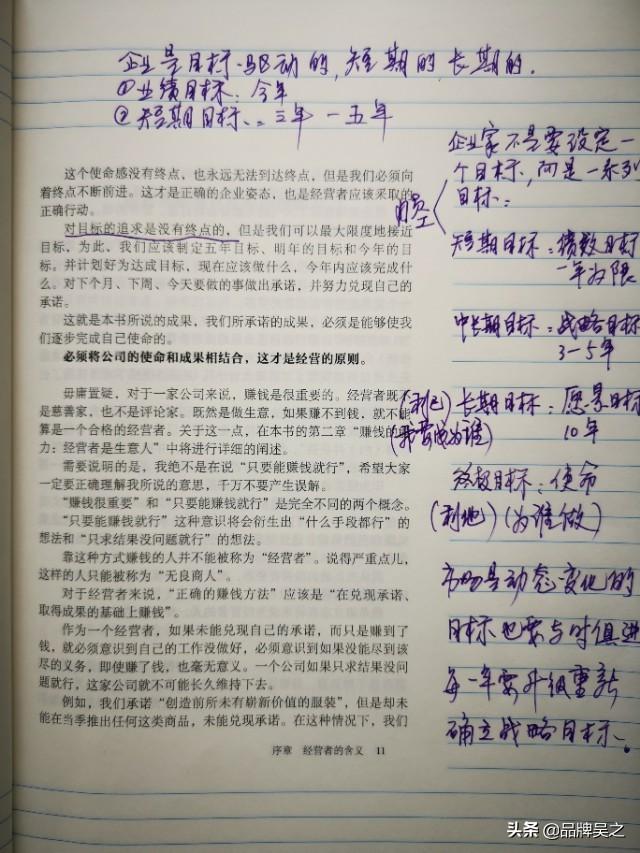 企业是目标驱动的，短期的长期的.
①业绩目标：今年
②短期目标：三年－五年
这个使命感没有终点，也永远无法到达终点，但是我们必须向
着终点不断前进。这才是正确的企业姿态，也是经营者应该采取的
正确行动。
对目标的追求是没有终点的，但是我们可以最大限度地接近
目标，为此，我们应该制定五年目标、明年的目标和今年的目
标。并计划好为达成目标，现在应该做什么，今年内应该完成什
么。对下个月、下周、今天要做的事做出承诺，并努力兑现自己的
承诺。
这就是本书所说的成果，我们所承诺的成果，必须是能够使我
们逐步完成自己使命的。
必须将公司的使命和成果相结合，这才是经营的原则。
毋庸置疑，对于一家公司来说，赚钱是很重要的。经营者既不
是慈善家，也不是评论家。既然是做生意，如果赚不到钱，就不能
算是一个合格的经营者。关于这一点，在本书的第二章“赚钱的
力：经营者是生意人”中将进行详细的阐述。
需要说明的是，我绝不是在说“只要能赚钱就行”，希望大家
一定要正确理解我所说的意思，千万不要产生误解。
“赚钱很重要”和“只要能赚钱就行”是完全不同的两个概念。
“只要能赚钱就行”这种意识将会衍生出“什么手段都行”的
想法和“只求结果没问题就行”的想法。
靠这种方式赚钱的人并不能被称为“经营者”。说得严重点儿，
这样的人只能被称为“无良商人”。
对于经营者来说，“正确的赚钱方法”应该是“在兑现承诺、
取得成果的基础上赚钱”。
作为一个经营者，如果未能兑现自己的承诺，而只是赚到了
钱，就必须意识到自己的工作没做好，必须意识到如果没能尽到该
尽的义务，即使赚了钱，也毫无意义。一个公司如果只求结果没问
题就行，这家公司就不可能长久维持下去。
例如，我们承诺“创造前所未有崭新价值的服装”，但是却未
能在当季推出任何这类商品，未能兑现承诺。在这种情况下，我们
序章 经营者的含义 11
企业家不是要设定一
个目标，而是一系列
目标：
短期目标：绩效目标
一年为限
中长期目标：战略目标
3-5年
(利己) 长期目标：愿景目标
(我要成为谁) 10年
终极目标：使命
(利他) (为谁做)
市场是动态变化的
目标也要与时俱进
每一年要升级重新
确立战略目标。
头条 @品牌吴之